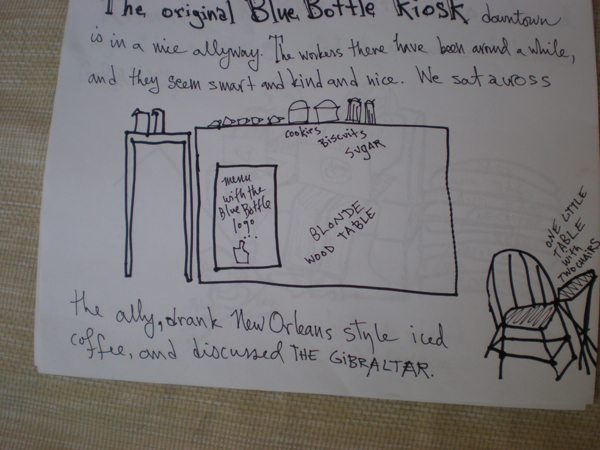 The original Blue Bottle Kiosk downtown
is in a nice allyway. The workers there have been around a while,
and they seem smart and kind and nice. We sat across
cookies
Biscuits
SUGAR
menu
with the
Blue Bottle
logo
BLONDE
WOOD TABLE
ONE LITTLE
TABLE
with
TWO CHAIRS
the ally, drank New Orleans style iced
coffee, and discussed THE GIBRALTAR.